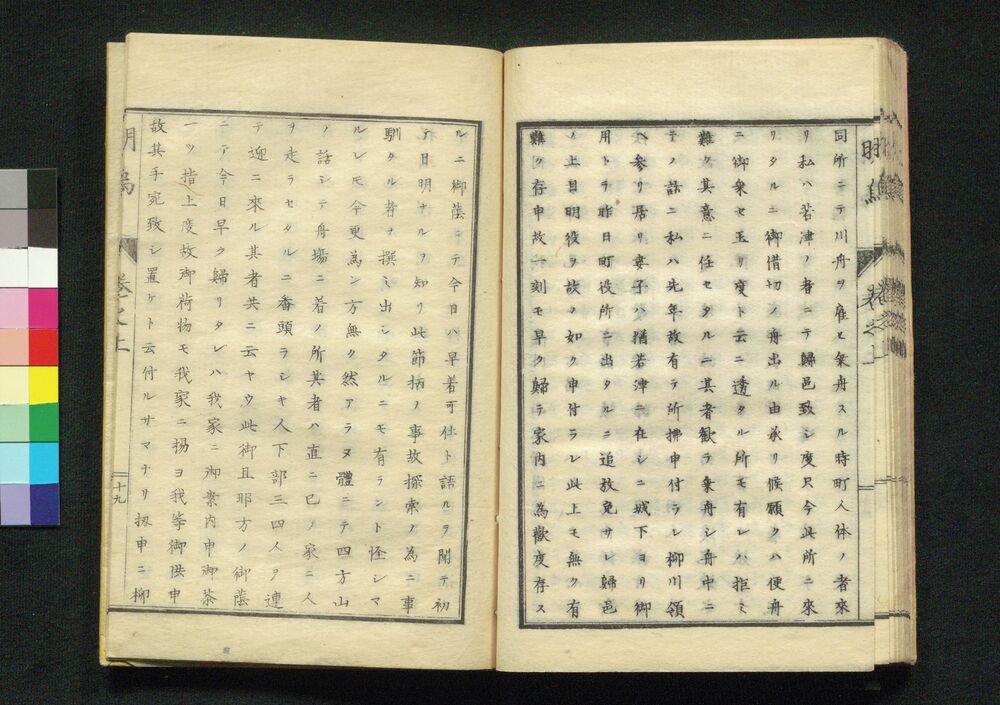 同所ニテ川舟ヲ雇ヒ乗舟スル時町人体ノ者來
リ私ハ若津ノ者ニテ歸邑致シ度只今此所ニ來
リタルニ御借切ノ舟出ル由承リ候願クハ便舟
ニ御乗セ玉リ度ト云ニ透タル所モ有レハ拒ミ
難ク其意ニ任セタルニ其者歓テ乗舟シ舟中ニ
テノ話ニ私ハ先年故有テ所拂申付ラレ柳川領
ヘ参リ居リ妻子ハ猶若津ニ在シニ城下ヨリ御
用トテ昨日町役所ニ出タルニ追放免サレ歸邑
ノ上目明役ヲ故ノ如ク申付ラレ此上モ無ク有
難ク存申故一刻モ早ク歸テ家内ニ為歡度存ス
ルニ御蔭ニテ今日ハ早着可仕ト語ルヲ聞テ初
テ目明ナルヲ知リ此節柄ノ事故探索ノ為ニ事
馴タル者ヲ撰ミ出シタルニモ有ラント怪シマ
ルレモ今更為ン方無ク然アラヌ體ニテ四方山
ノ話シテ舟場ニ若ノ所其者ハ直ニ己ノ家ニ人
ヲ走ラセタルニ番頭ラシキ人下部三四人ヲ連
テ迎ニ來ル其者共ニ云ヤウ此御且那方ノ御蔭
ニテ今日早ク歸リタレハ我家ニ御案内申御茶
一ツ指上度故御荷物モ我家ニ揚ヨ我等御供申
故其手宛致シ置ケト云付ルサマナリ扨申ニ柳
明烏
巻之上
十九